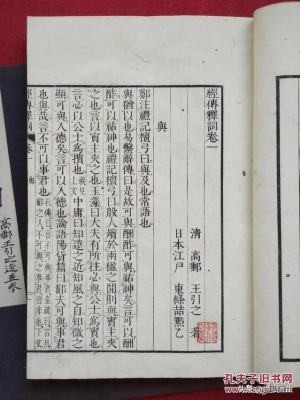 經傳釋詞卷一
清 高郵 王引之 著
日本江戶 東條喆點乙
與
鄭注禮記檀弓曰與及也常語也
與猶以也易繫辭傳曰是故可與酬酢可與祐神矣言可以酬
酢可以祐神也禮記檀弓曰殷人殯於兩楹之間則與賓主夾
之也言以賓主夾之也玉藻曰大夫有所往必與公士爲賓也
言必以公士爲擯也義見上文中庸曰知遠之近知風之自知微之
顯可與入德矣言可以入德也論語陽貨篇曰鄙夫可與事君
也與哉言不可以事君也
經傳釋詞 卷一
高郵王引之
孔夫子旧书网